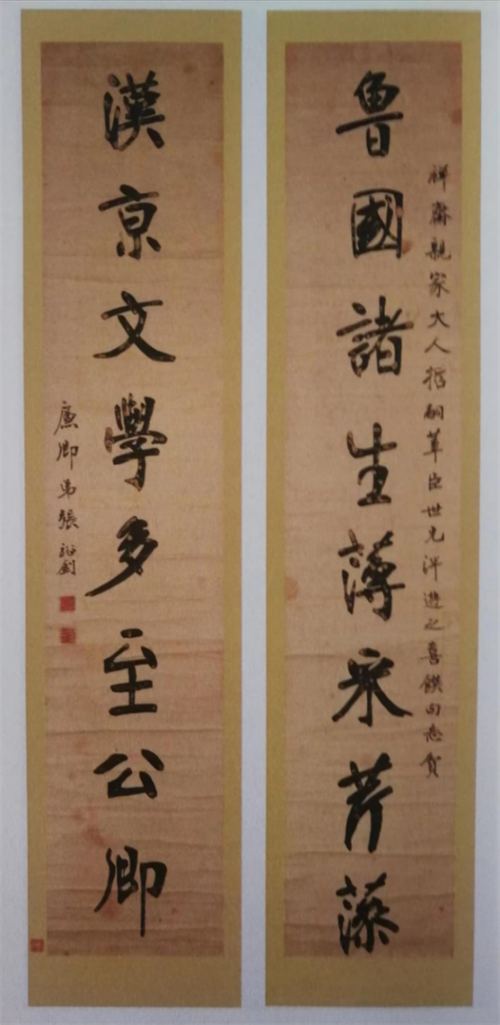 祥齋親家大人哲嗣華臣世兄泮遊之喜饌句志賀
魯國諸生薄采芹藻
漢京文學多至公卿
廉卿弟張裕釗